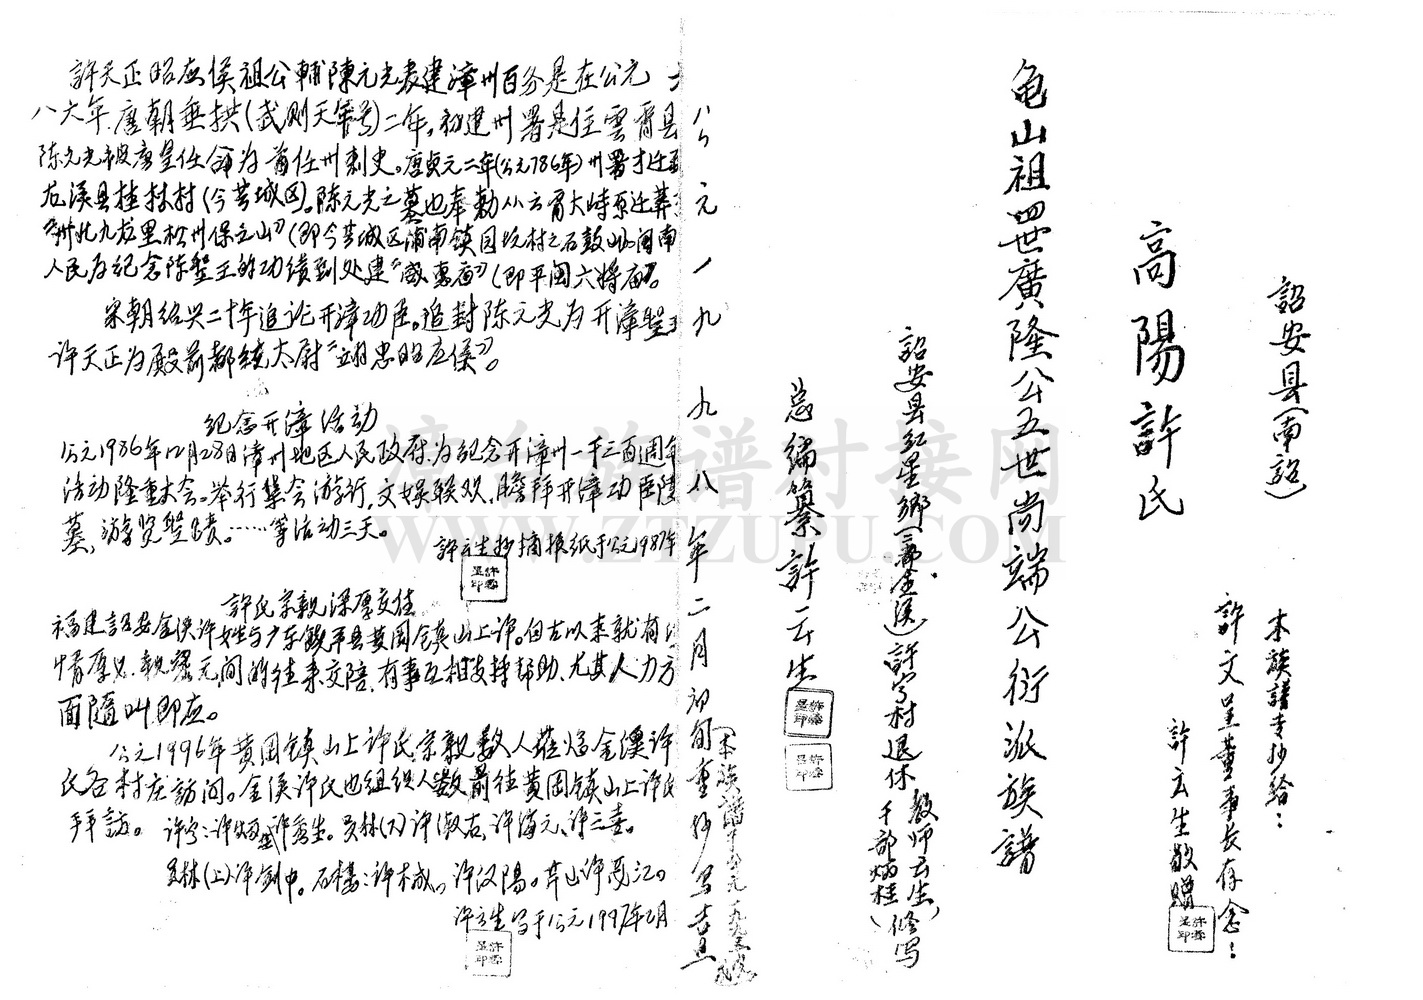 詔安县(南詔)
高陽許氏
本族譜专抄給：
許文呈董事長存念：
許云生敬贈
龟山祖四世廣隆公五世尚端公衍派族譜
詔安县红星鄉(三都金溪)許寮村退休教师云生，
干部炳桂(修写
总编纂許云生
公元一九九八年二月初旬重抄写
許天正昭应侯祖公輔陳元光表建漳州百务是在公元六
八六年.唐朝垂拱(武则天年号)二年。初建州署是在雲霄县
陈元光被唐皇任命为首任州刺史。唐貞元二年(公元786年)州署才迁到
龙溪县桂林村(今芗城区)。陈元光之墓也奉勅从云霄大峙原迁葬
州北九龙里松州保之山”(即今芗城区浦南镇园坑村之石鼓山。闽南
人民为纪念陈聖王的功绩到处建“威惠庙”(即平闽六将庙。
宋朝绍兴二十年追论开漳功臣。追封陈元光为开漳聖王
许天正为殿前都統太尉“翊忠昭应侯”。
纪念开漳活动
公元1986年12月28日漳州地区人民政府.为纪念开漳州一千三百週年
活动隆重大会。举行集会游行，文娱联欢，瞻拜开漳功臣陵
墓，游览聖蹟。……等活动三天。
許云生抄摘报纸于公元1987年
許氏宗親深厚交往
福建詔安金溪许姓与广东饒平县黄岡镇山上许。自古以来就有
情厚，親密元间的往来交陪，有事互相支持帮助、尤其人力方
面隨叫即应。
公元1996年黄岡镇山上许氏宗親数人蒞临金溪许
氏各村庄訪问。金溪许氏也組织人数前往黄岡镇山上许氏
拜訪。
石楼：许木城。许汉陽。
许云生写于公元1997年2月